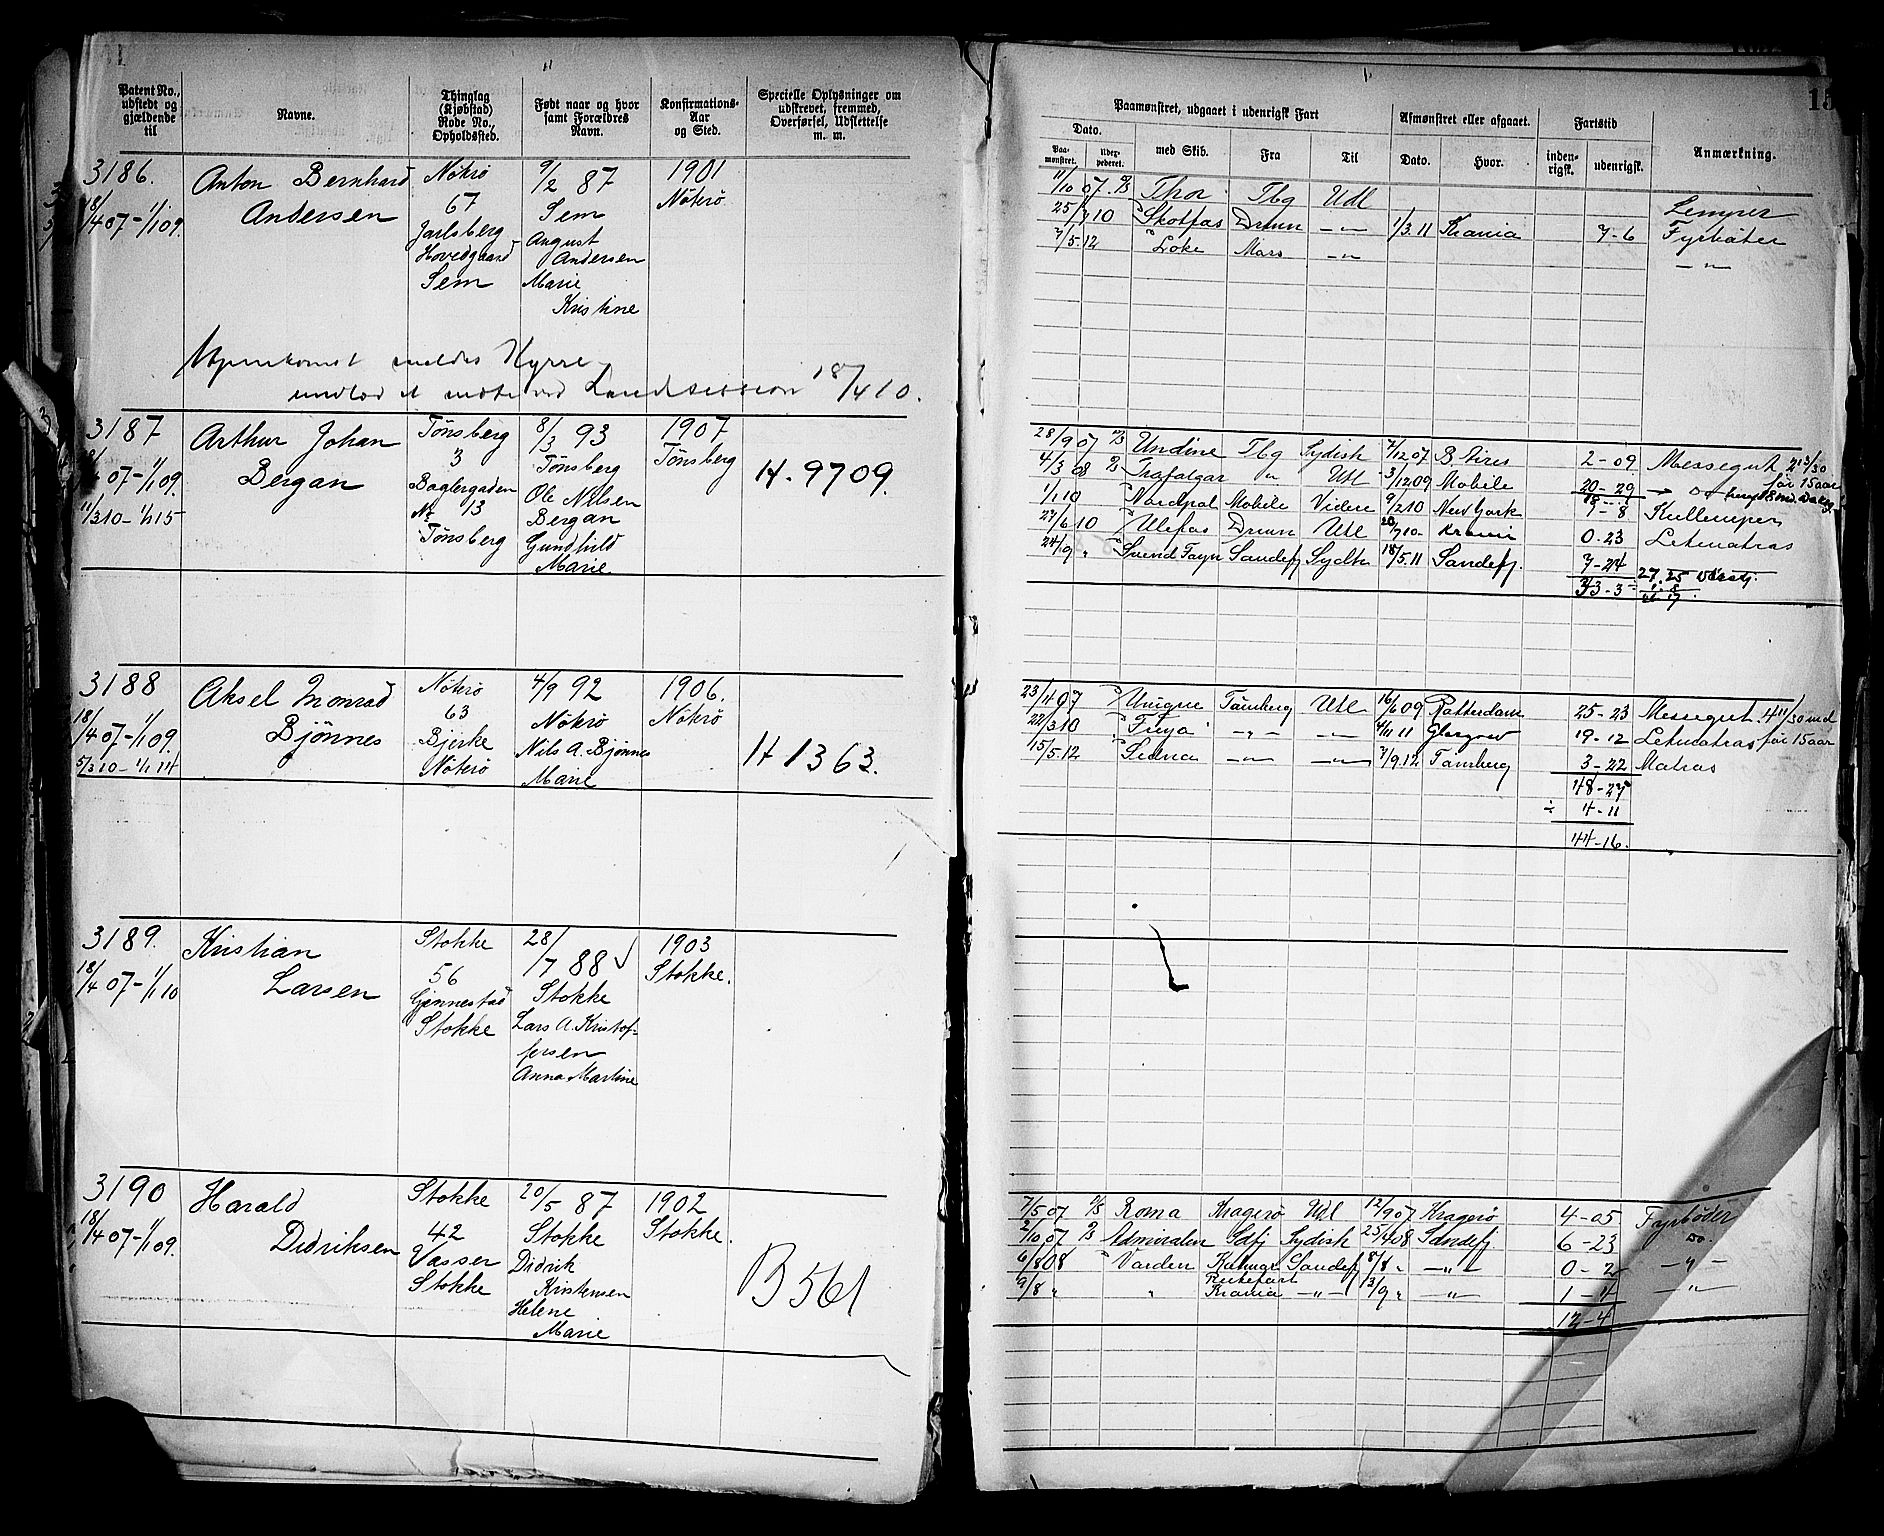 Patent No., udstedt og gjældende til
Navne.
Thinglag (Kjøbstad) Rode No., Opholdssted.
Født naar og hvor samt Forældres Navn.
Konfirmations-Aar og Sted.
Specielle Oplysninger om udskrevet, fremmed, Overførsel, Udslettelse m. m.
3186.
18/4 07 - 1/1 09.
Anton Bernhard
Andersen
Nøtrø
67
Jarlsberg
Hovedgaard
Sem
9/2 87
Sem
August
Andersen
Marie
Kristine
1901
Nøtrø
meldes
Landsession 18/4 10.
3187
18/4 07 - 1/1 09.
11/3 10 - 1/1 15
Arthur Johan
Bergan
Tønsberg
3
Baglergaden
No 13
Tønsberg
8/3 93
Tønsberg
Ole Nilsen
Bergan
Gundhild
Marie
1907
Tønsberg
H. 9709.
3188
18/4 07 - 1/1 09.
5/3 10 - 1/1 14
Aksel Monrad
Bjønnes
Nøtrø
63
Bjerke
Nøtrø
4/9 92
Nøtrø
Nils A. Bjønnes
Marie
1906.
Nøtrø
H 1363.
3189.
18/4 07 - 1/1 10
Kristian
Larsen
Stokke
56
Gjennestad
Stokke
28/7 88
Stokke
Lars A. Kristof-
fersen
Anna Martine
1903
Stokke.
3190
18/4 07 - 1/1 09.
Harald
Didriksen
Stokke
42
Vasser
Stokke
20/5 87
Stokke
Didrik
Kristensen
Helene
Marie
1902
Stokke.
B 561
13
Paamønstret, udgaaet i udenrigsk Fart
Afmønstret eller afgaaet.
Fartstid
Anmærkning.
Dato.
Paa-mønstret.
med Skib.
Fra
Til
Dato.
Hvor.
inden-rigsk.
udenrigsk.
11/10 07. D/S Thor Tbg Udl Lemper
25/7 10 " Skotfos Drmn -"- 1/3. 11 Krania 7-6 Fyrbøter
7/5. 12 " Loke Moss -"- -"-
28/9 07 D/S Undine Tbg Sydish 7/12 07 B. Aires 2-09 Messegut
4/3 08 D/S Trafalgar " Udl 3/12 09 Mobile 20-29 før 15 aar
1/1 10 " Nordpol Mobile Videre 9/2 10 New York 7-8 Kullemper
27/6 10 " Ulefos Drmn Udl 20/7 10 Krania 0.23 Letmatros
24/9 " " Svend Foyn Sandefj Sydh 18/5. 11 Sandefj. 7-24
33-3
23/4 07 " Unique Tønsberg Udl 16/6 09 Rotterdam 25-23 Messegut. 4 11/30 md
22/3 10 " Freya -"- -"- 4/11 11 Glasgow 19-12 Letmatros før 15 aar
15/5. 12 " Sedna -"- -"- 7/9. 12 Tønsberg 3-22 Matros
48-27
÷ 4-11
44-16.
7/5 07 D/S Roma Kragerø Udl 12/9 07 Kragerø 4-05 Fyrbøder
2/10 07 D/S Admiralen Sdfj Sydish 25/4 08 Sandefj 6-23 do.
6/8 08 " Varden Kalmar Sandefj 8/8 " -"- 0-2 -"-
9/8 " " Krania -"- 13/9 " -"- 1-4 -"-
12-4